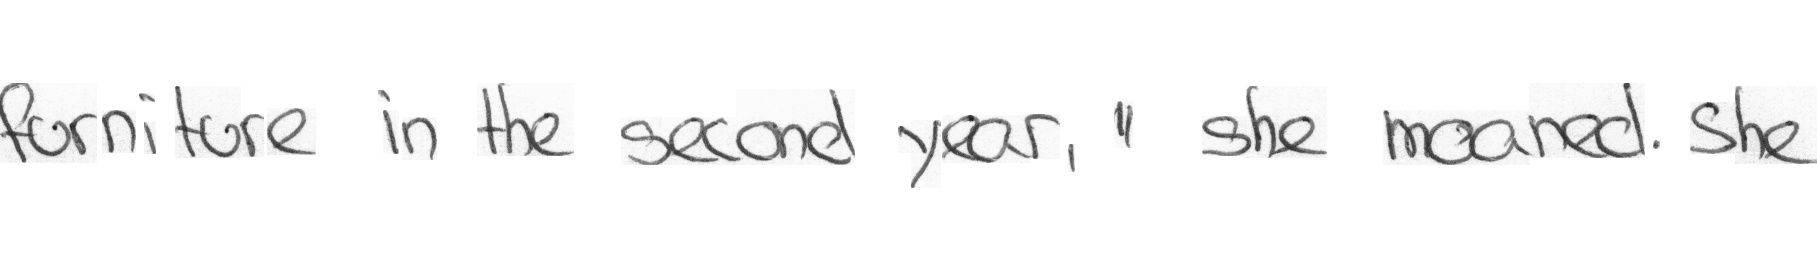 furniture in the second year, " she moaned. She